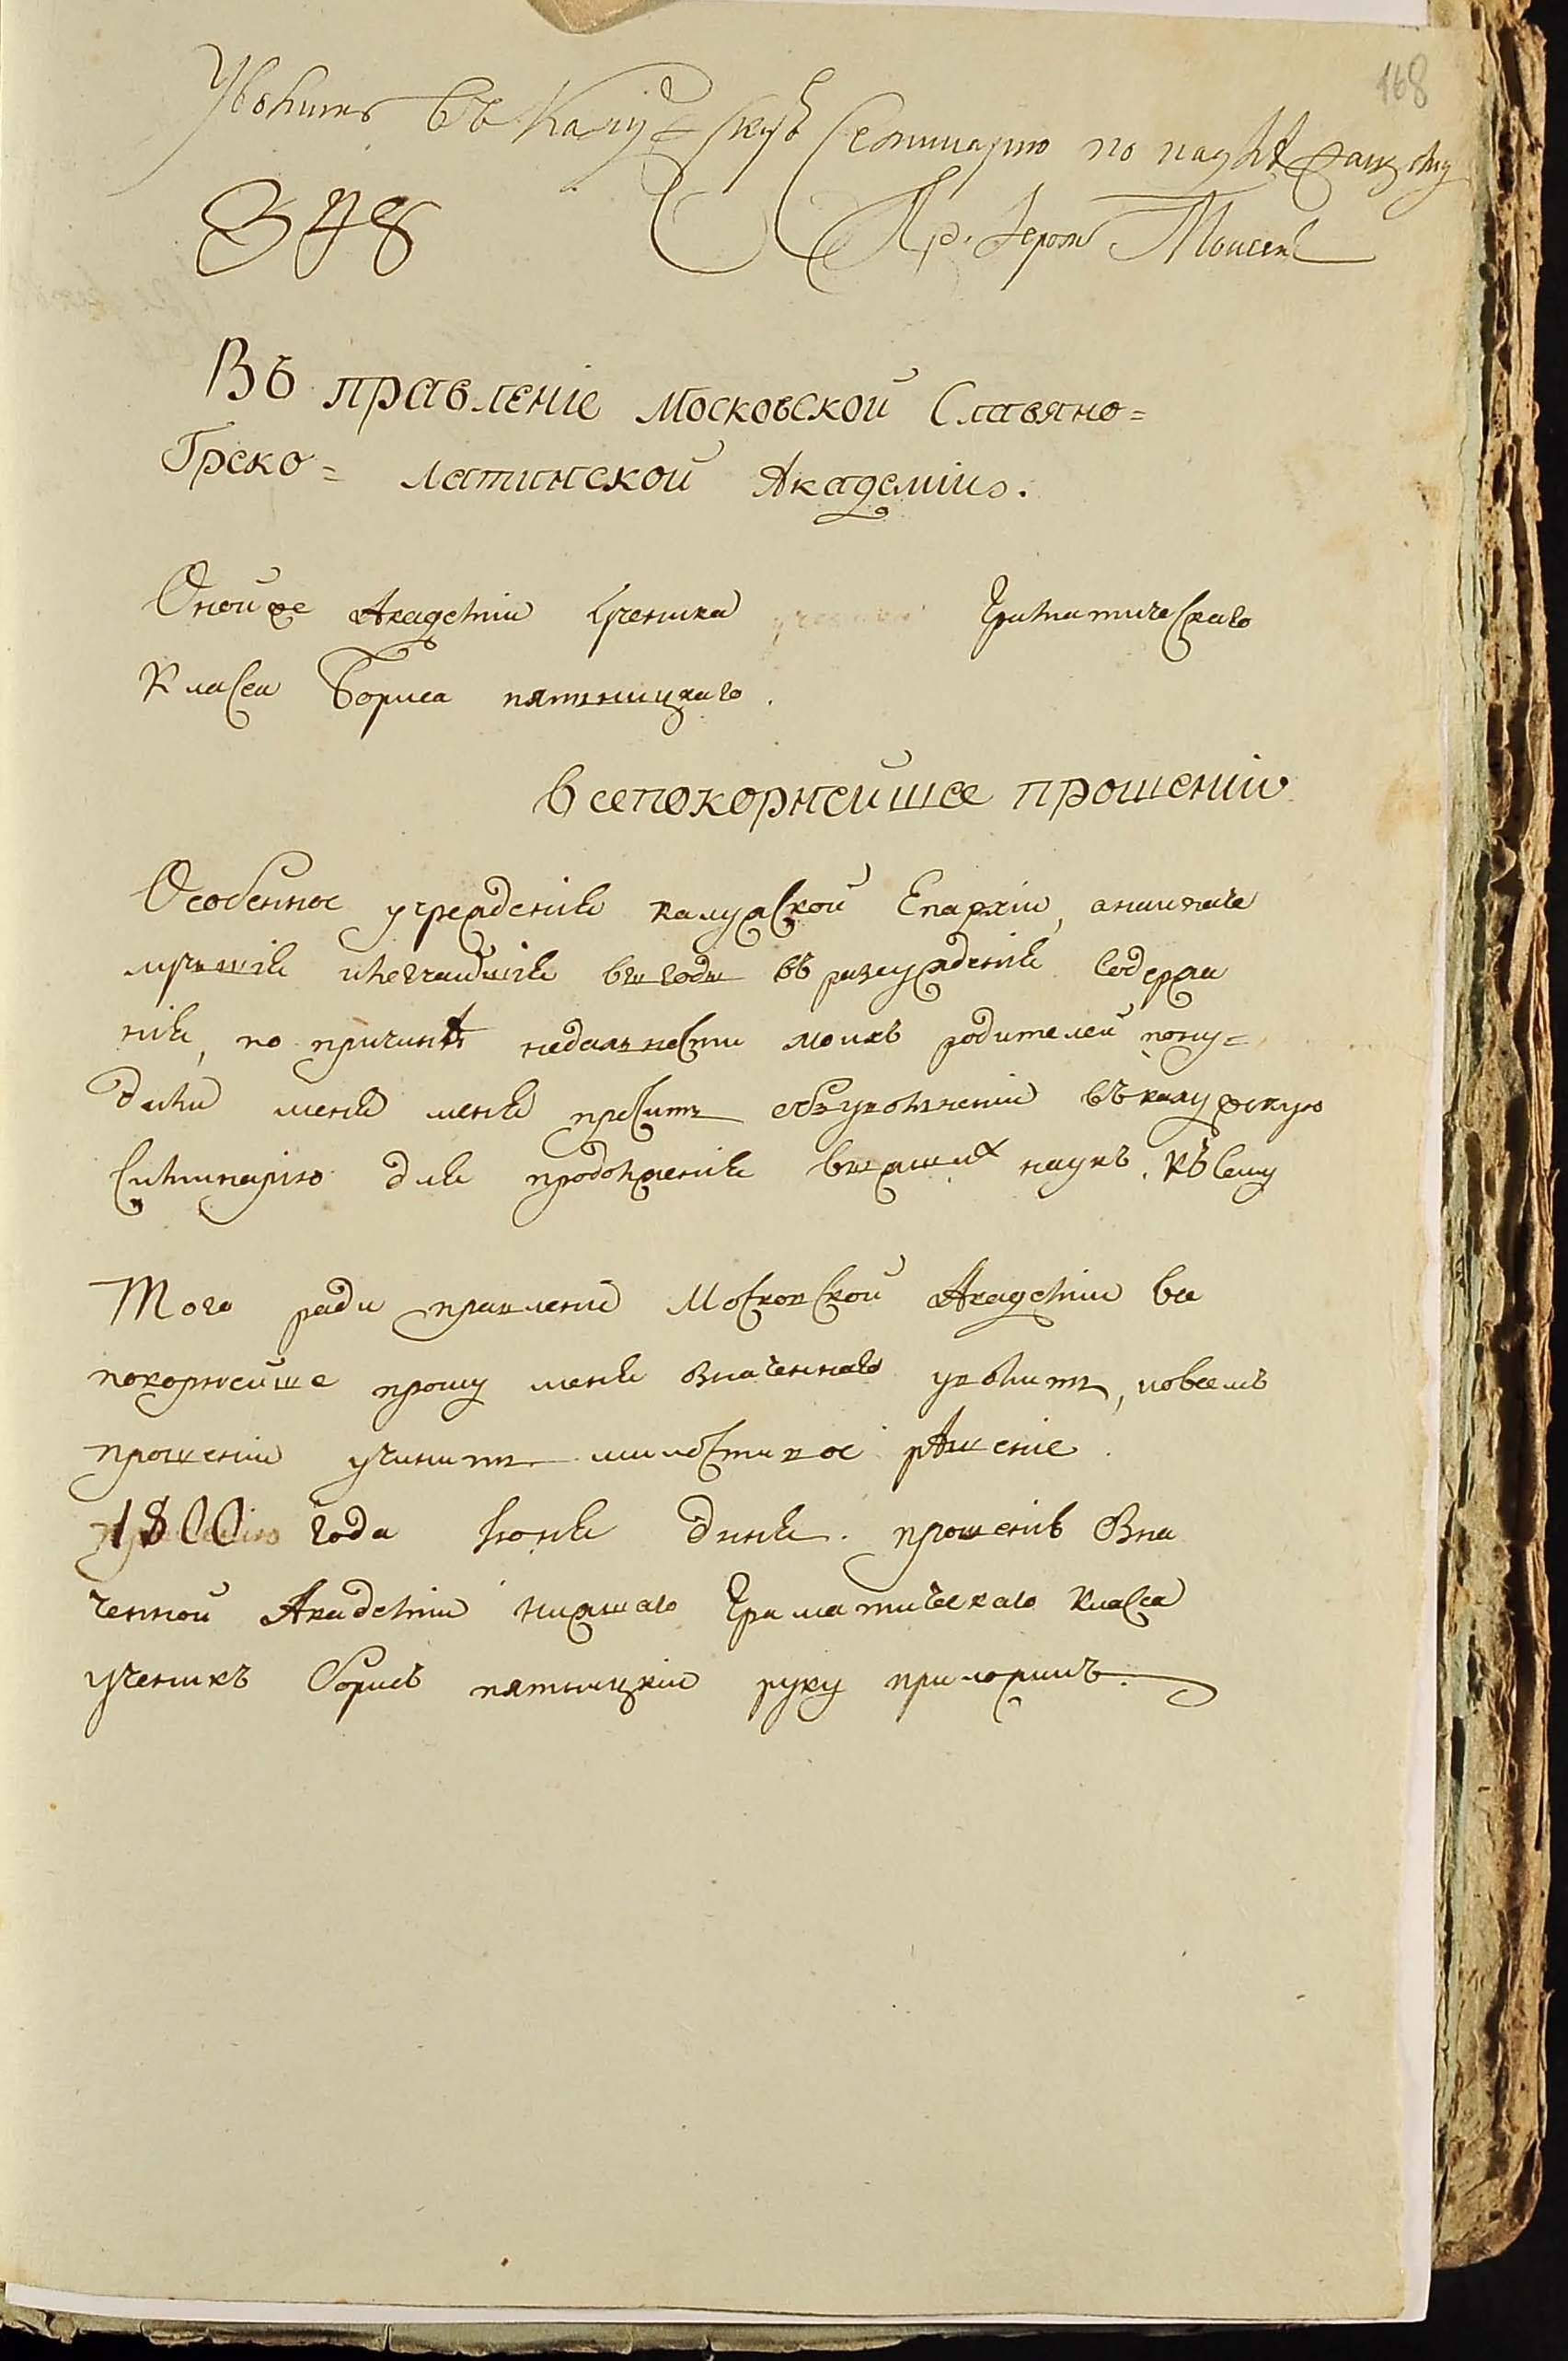 168
Уволить въ Калужскую Семинарію по надлежащему
348
Пр. Іером Моисей
Въ правленіе Московской Славяно=
Греко= латинской Академіи.
Оной же Академіи Ученика Граматическаго
Класса Бориса пятницкаго.
всепокорнейшее прошеніи
Особенное учрежденія калужской Епархіи, а наипаче
лучшія и легчайшія выгоды въ разсужденія содержа
нія, по причинѣ недальности моихъ родителей пону=
дили меня просить объ уволненіи въ калужскую
Симинарію для продолженія вышшихъ наукъ. Къ сему
Того ради правленіи Московской Академіи все
покорнейше прошу меня означеннаго уволить, и о всемъ
прошеніи учинить милостивое рѣшеніе.
1800 года Іюня дня. прошенію Озна
ченной Академіи нижшаго Граматическаго Класса
ученикъ Борисъ пятницкіи руку приложилъ.